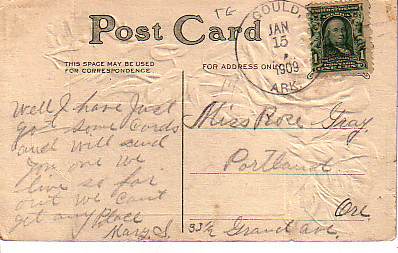 GOULD,
JAN
15
1909
ARK.
Post Card
THIS SPACE MAY BE USED
FOR CORRESPONDENCE
FOR ADDRESS ONLY
Well I have Just
got some Cords
and will send
you one we
live so far
out we Cant
get any Place
Mary S.
Miss Rose Gray
Portland
Ore
Grand ave.